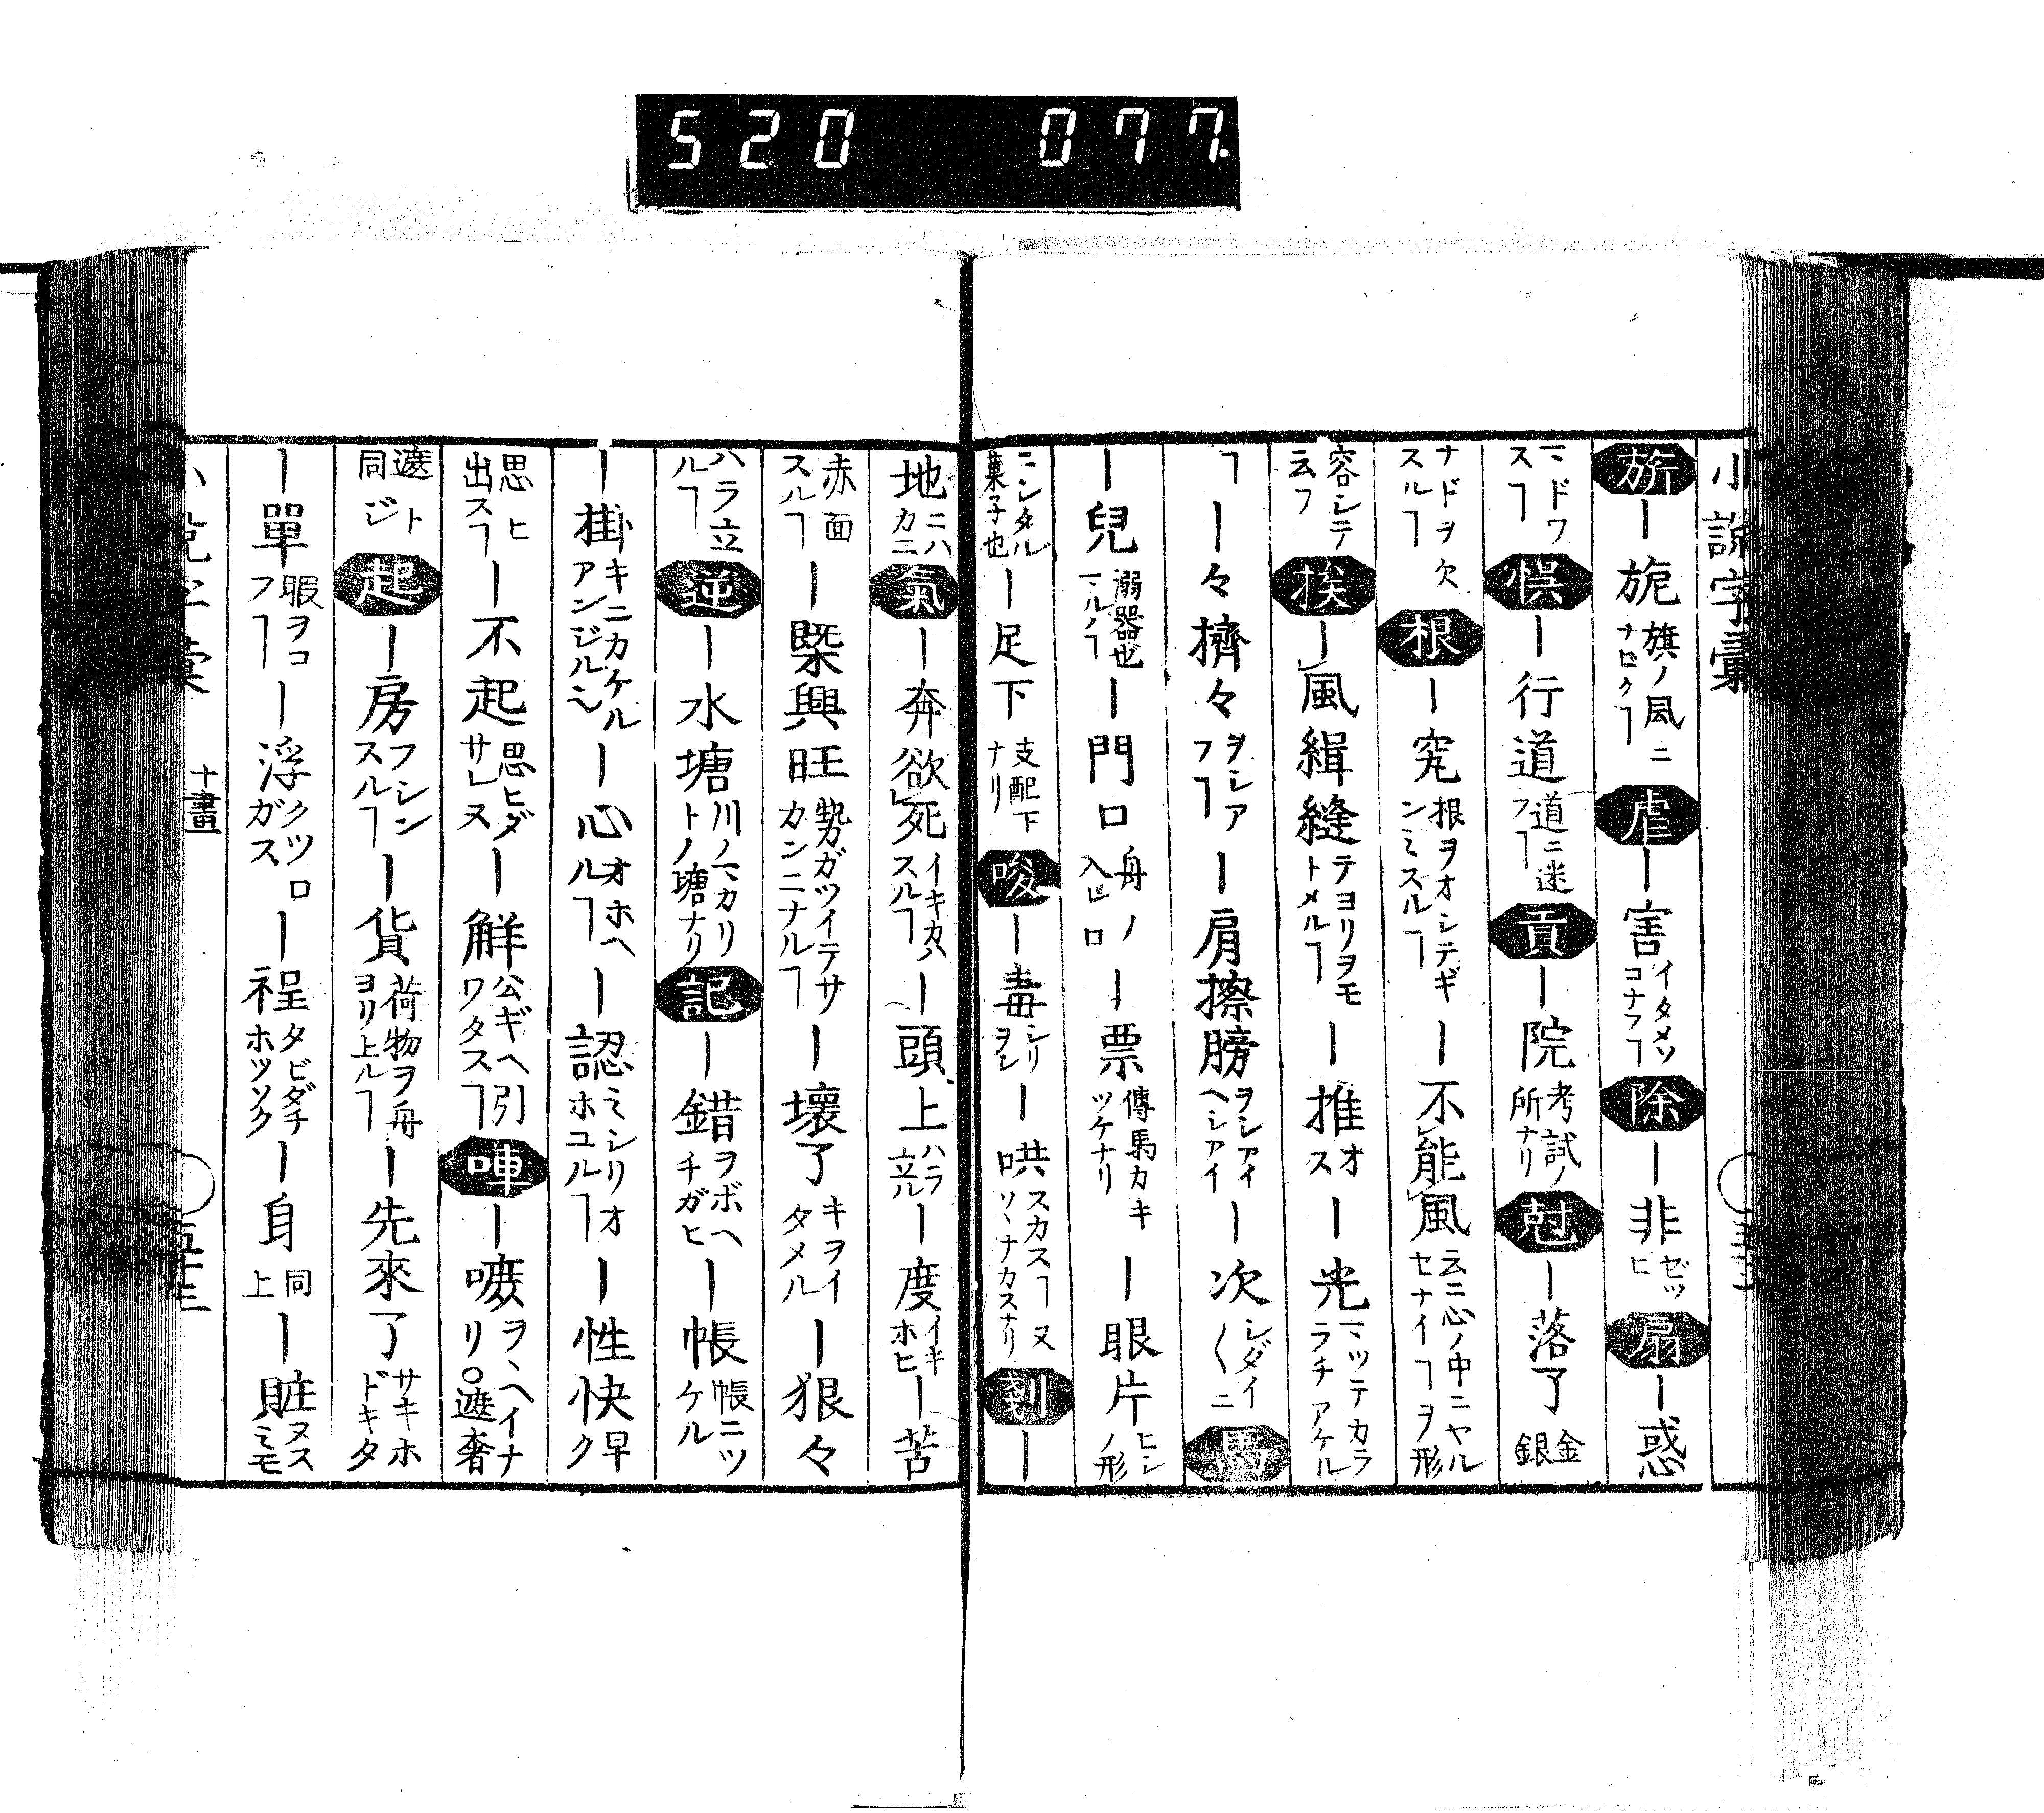 520 077.
小說字彙
旂｜旎旗ノ風ニナビクヿ虐｜害イタメソコナフヿ除｜非ゼヒ扇｜惑
マドワスヿ悞｜行道道ニ迷フヿ貢｜院考試ノ所ナリ尅｜落了金銀
ナドヲ欠スルヿ根｜究根ヲオシテギンミスルヿ｜不能風云ニ心ノ中ニヤルセナイヿヲ形
容シテ云フ挨｜風緝縫テヨリヲモトメルヿ｜推オス｜光マツテカラチアケル
ヿ｜々擠々ヲシアフヿ｜肩擦膀ヲシアイヘシアイ｜次シダイ〱ニ馬
｜兒溺器也マルノヿ｜門口舟ノ入口｜票傳馬カキツケナリ｜眼片ヒシノ形
ニシタル菓子也｜足下支配下ナリ唆｜毒｜哄スカスヿ剥｜
地ニハカニ氣｜奔欲死イキカヽスルヿ｜頭上ハラ立ル｜度イキホヒ｜苦
赤面スルヿ｜槩興旺勢ガツイテサカンニナルヿ｜壞了キヲイタメル｜狠々
ハラ立ルヿ逆｜水塘川ノマカリトノ塘ナリ記｜錯ヲボヘチガヒ｜帳帳ニツケル
｜掛キニカケルアンジル｜心オホヘルヿ｜認ミシリオホユルヿ｜性快早ク
思ヒ出スヿ｜不起思ヒダサレヌ｜解公ギヘ引ワタスヿ唓｜嗻ヲヽヘイナリ○遮奢
遮ト同ジ起｜房フシンスルヿ｜貨荷物ヲ舟ヨリ上ルヿ｜先來了サキホドキタ
｜單暇ヲコフヿ｜浮クツロガス｜程タビダチホツソク｜身同上｜賍ヌスミモ
十畫